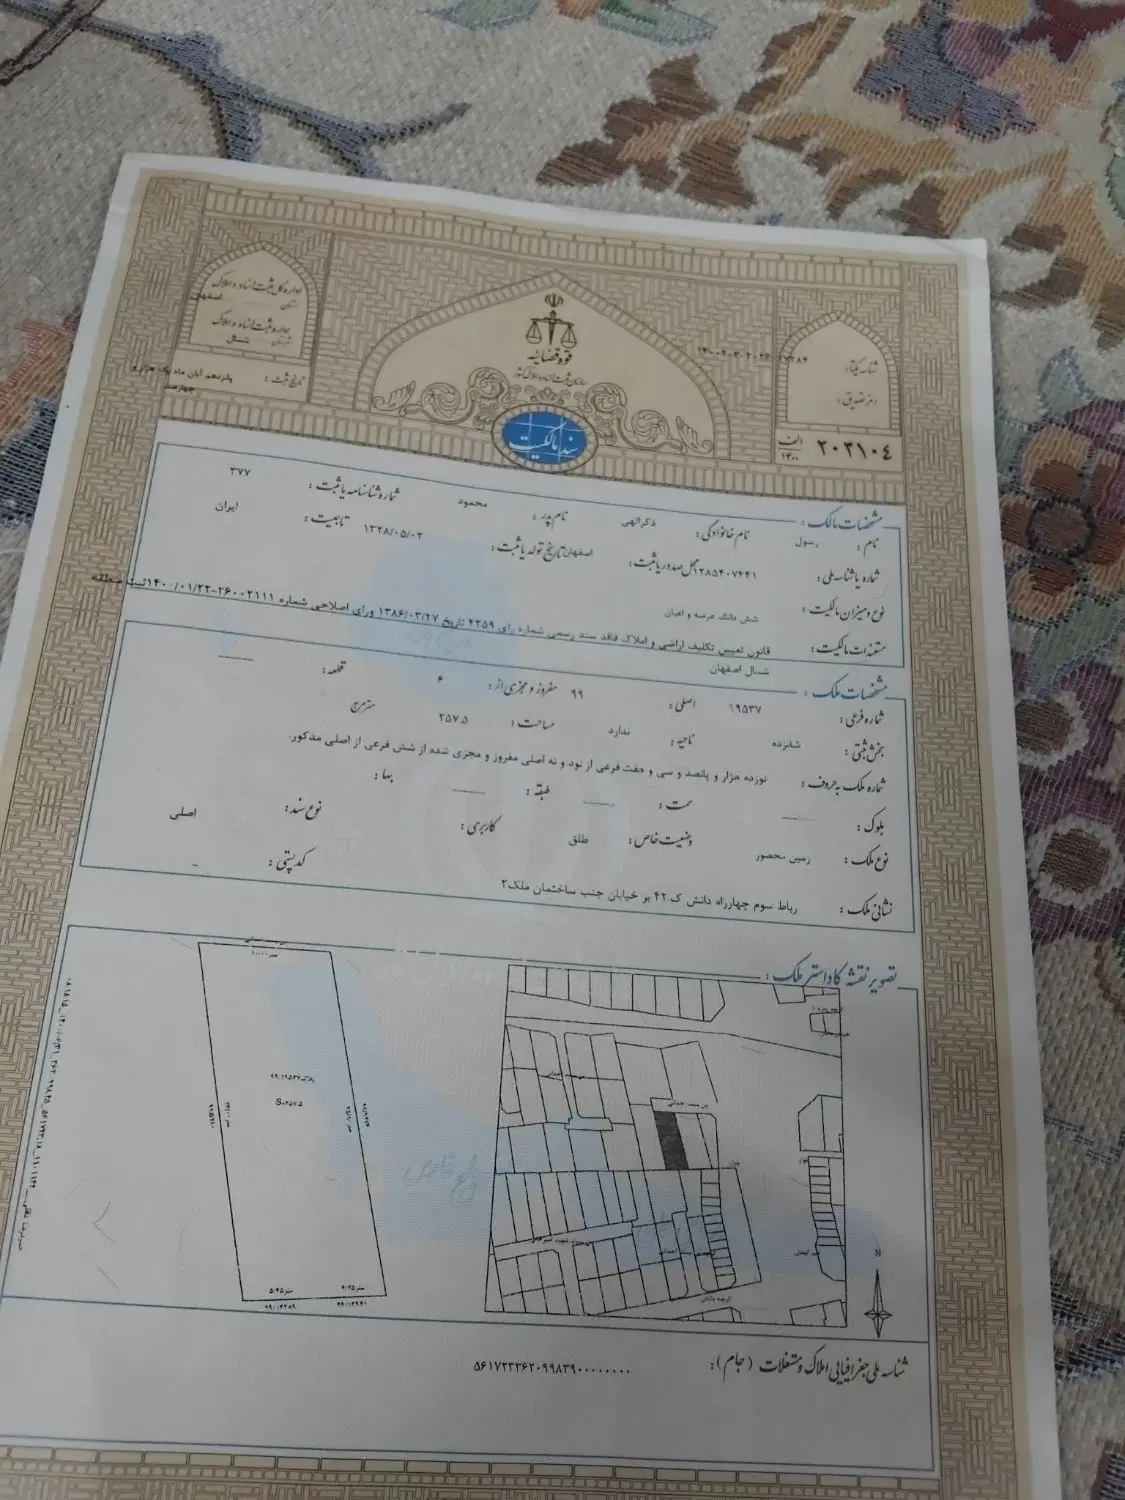 اداره کل ثبت اسناد و املاک
استان اصفهان
اداره ثبت اسناد و املاک
شمال
تاریخ ثبت : پانزدهم آبان ماه یک هزار و
چهارصد
قوه قضائیه
سازمان ثبت اسناد و املاک کشور
سند مالکیت
شناسه یکتا:
رمز تصدیق:
الف
۱۴۰۰
۲۰۳۱۰۴
مشخصات مالک :
نام : رسول نام خانوادگی : ذکرالهی نام پدر : محمود شماره شناسنامه یا ثبت : ۳۷۷
شماره یا شناسه ملی : ۱۲۸۵۴۰۷۴۴۱ محل صدور یا ثبت : اصفهان تاریخ تولد یا ثبت : ۱۳۲۸/۰۵/۰۲ تابعیت : ایران
نوع و میزان مالکیت : شش دانگ عرصه و اعیان
مستندات مالکیت : قانون تعیین تکلیف اراضی و املاک فاقد سند رسمی شماره رای ۴۲۵۹ تاریخ ۱۳۸۶/۰۳/۲۷ ورای اصلاحی شماره ۲۶۰۰۲۱۱۱-۱۴۰۰/۰۱/۲۲ ثبت منطقه
شمال اصفهان
مشخصات ملک :
شماره فرعی : ۱۹۵۳۷ اصلی : ۹۹ مفروز و مجزی از : ۶ قطعه :
بخش ثبتی : شانزده ناحیه : ندارد مساحت : ۲۵۷.۵ مترمربع
شماره ملک به حروف : نوزده هزار و پانصد و سی و هفت فرعی از نود و نه اصلی مفروز و مجزی شده از شش فرعی از اصلی مذکور.
بلوک : سمت : طبقه : بها :
نوع ملک : زمین محصور وضعیت خاص : طلق کاربری : نوع سند : اصلی
نشانی ملک : رباط سوم چهارراه دانش ک ۴۲ بر خیابان جنب ساختمان ملک۲ کد پستی :
تصویر نقشه کاداستر ملک :
پلاک ۹۹/۱۹۵۳۷
S=۲۵۷.۵
خلیج فارس
N
شناسه ملی جغرافیایی املاک و مستغلات (جام) : ۵۶۱۷۲۳۳۶۲۰۹۹۸۳۹۰۰۰۰۰۰۰۰۰